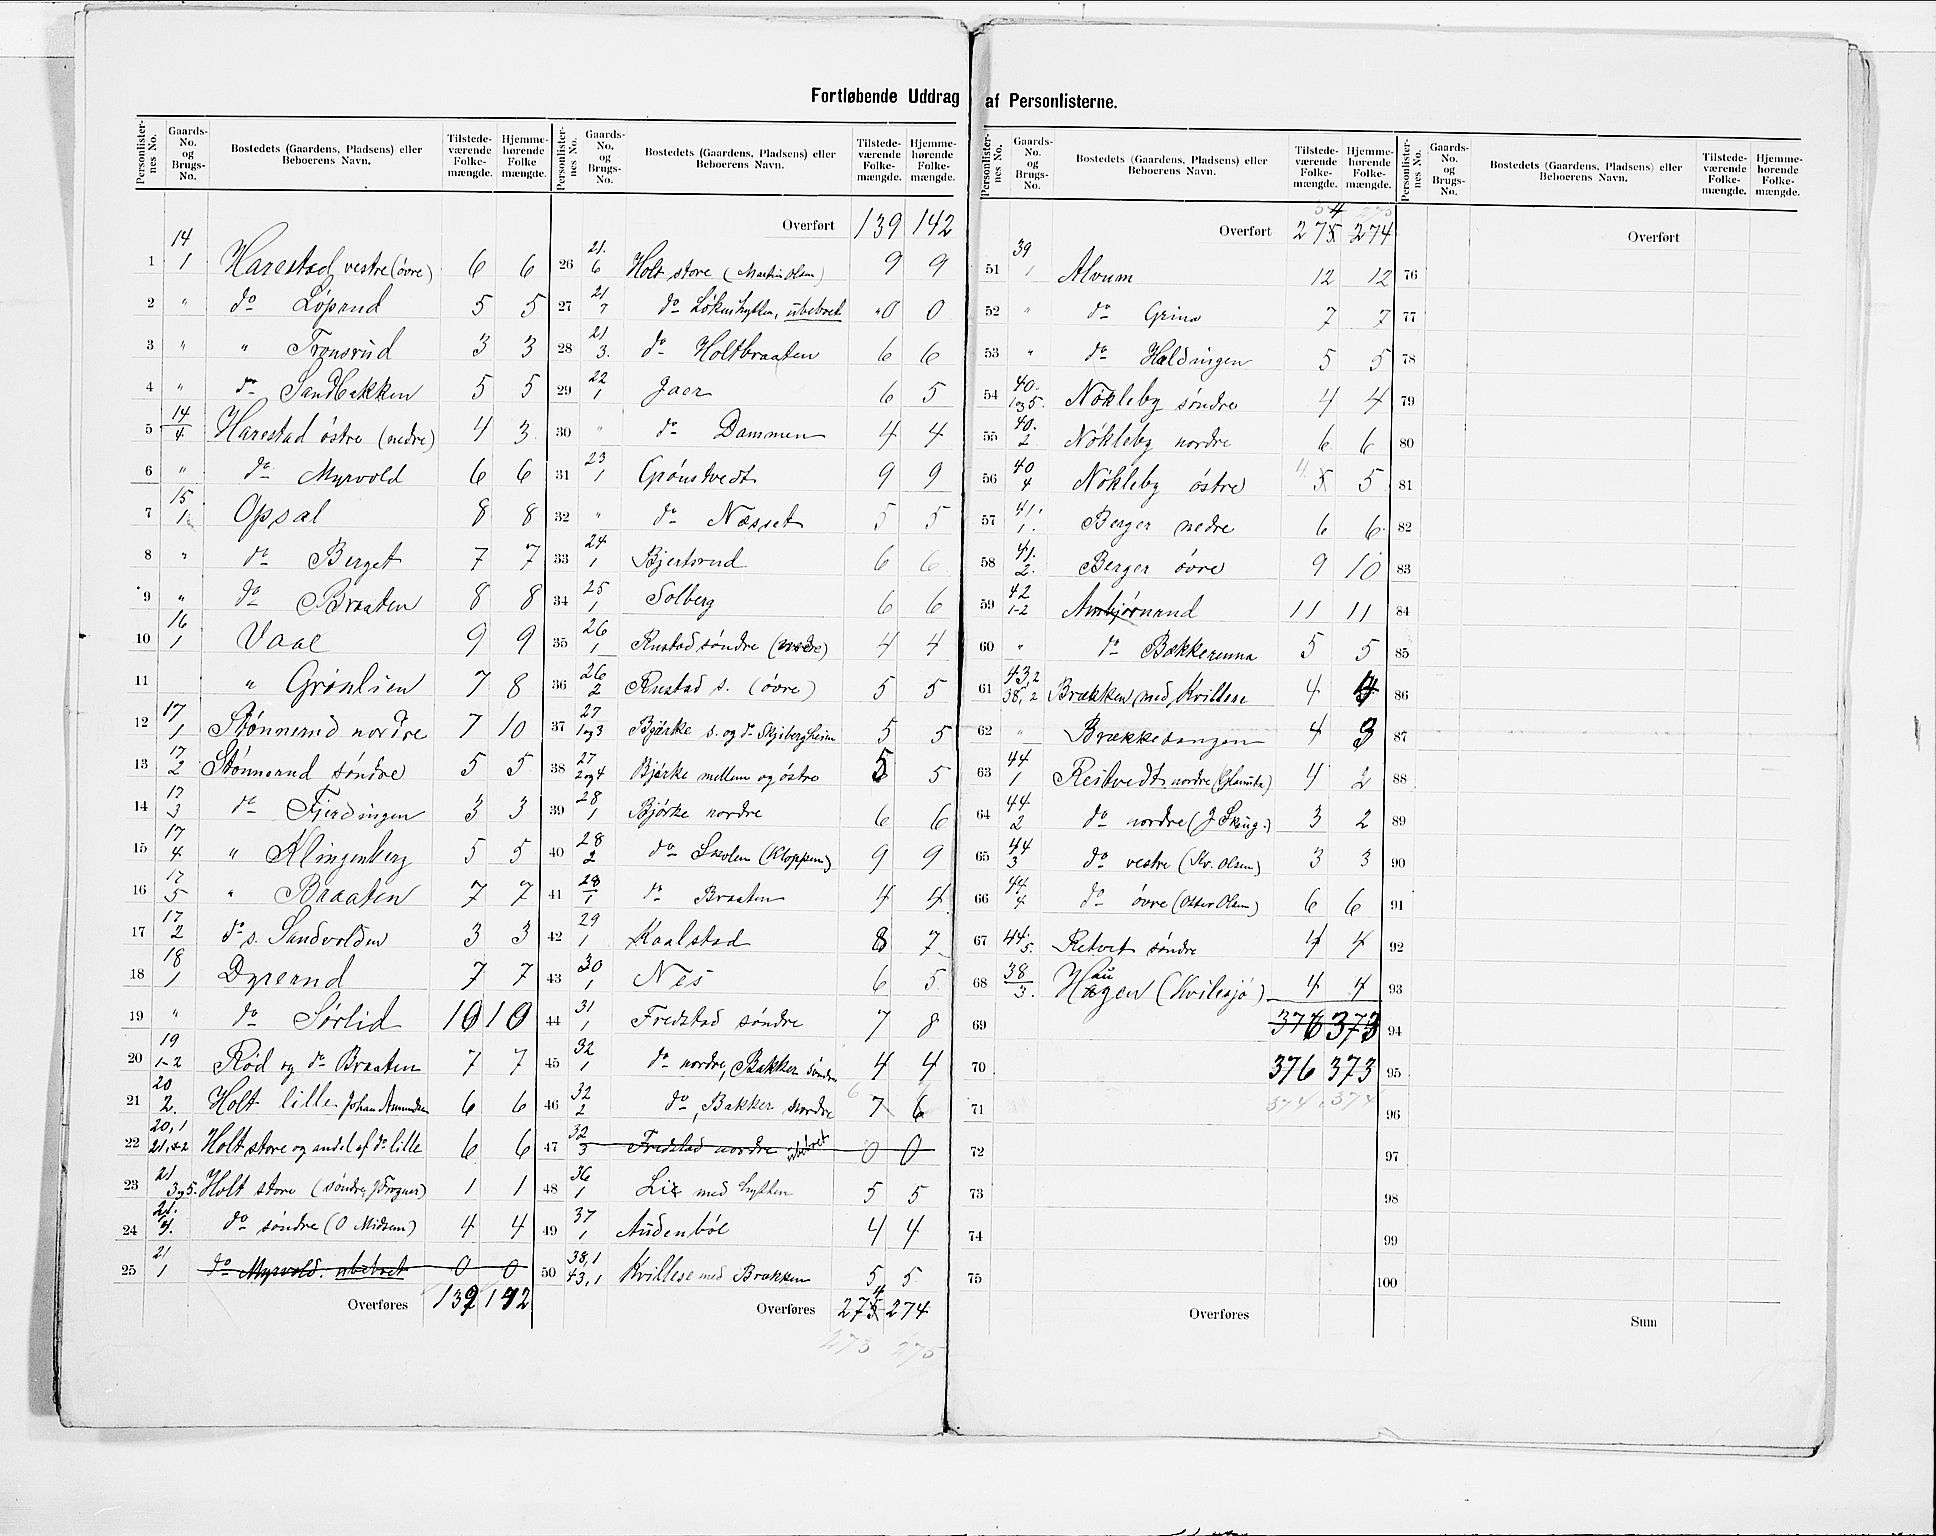 Fortløbende Uddrag af Personlisterne.
Personlister-nes No. Gaards-No. og Brugs-No. Bostedets (Gaardens, Pladsens) eller Beboerens Navn. Tilstede-værende Folke-mængde. Hjemme-hørende Folke mængde.
1 14 1 Harestad vestre (øvre) 6 6
2 " do Løpsrud 5 5
3 " " Tronsrud 3 3
4 " do Sandbakken 5 5
5 14/4 Harestad østre (nedre) 4 3
6 " do Myrvold 6 6
7 15 1 Opsal 8 8
8 " do Berget 7 7
9 " do Braaten 8 8
10 16 1 Vaal 9 9
11 " Grønlien 7 8
12 17 1 Stønnerud nordre 7 10
13 17 2 Stønnerud søndre 5 5
14 17 3 do Fjerdingen 3 3
15 17 4 " Klingenberg 5 5
16 17 5 " Braaten 7 7
17 17 2 do s. Sandvolden 3 3
18 18 1 Dyrerud 7 7
19 " do Sørlid 10 10
20 19 1-2 Rød og do Braaten 7 7
21 20 2. Holt lille Johan Amundsen 6 6
22 20,1 21,2 Holt store og andel af do lille 6 6
23 21 3 og 5. Holt store (søndre, J Frogner) 1 1
24 21. 4. do søndre (O Midsem) 4 4
25 21 1 do Myrvold. ubeboet 0 0
Overføres 139 142
Personlister-nes No. Gaards-No. og Brugs-No. Bostedets (Gaardens, Pladsens) eller Beboerens Navn. Tilstede-værende Folke-mængde. Hjemme-hørende Folke-mængde.
Overført 139 142
26 21. 6 Holt store (Martin Olsen) 9 9
27 21 7 do Løkenhytten, ubeboet 0 0
28 21 3. do Holtbraaten 6 6
29 22 1 Jaer 6 5
30 " do Dammen 4 4
31 23 1 Grønstvedt 9 9
32 " do Næsset 5 5
33 24 1 Bjertsrud 6 6
34 25 1 Solberg 6 6
35 26 1 Rustad søndre (nedre) 4 4
36 26 2 Rustad s. (øvre) 5 5
37 27 1 og 3 Bjørke s. og do Skjibergheim 5 5
38 27 2 og 4 Bjørke mellem og østre 5 5
39 28 1 Bjørke nordre 6 6
40 28 2 do Skolen (Kloppen) 9 9
41 28 1 do Braaten 4 4
42 29 1 Kaalstad 8 7
43 30 1 Nes 6 5
44 31 1 Fredstad søndre 7 8
45 32 1 do nordre, Bakken søndre 4 4
46 32 2 do, Bakken nordre 6 7 6
47 32 3 Fredstad nordre ubeboet 0 0
48 36 1 Lie med hytten 5 5
49 37 1 Audenbøl 4 4
50 38,1 43,1 Kvillese med Brækken 5 5
Overføres 275 4 274
273 275
Personlister-nes No. Gaards-No. og Brugs-No. Bostedets (Gaardens, Pladsens) eller Beboerens Navn. Tilstede-værende Folke-mængde. Hjemme-hørende Folke-mængde.
Overført 275 274
51 39 1 Alvum 12 12
52 " do Grina 7 7
53 " do Haldingen 5 5
54 40. 1 og 5. Nøkleby søndre 4 4
55 40. 2 Nøkleby nordre 6 6
56 40 4 Nøkleby østre 4 5 5
57 41. 1. Berger nedre 6 6
58 41. 2. Berger øvre 9 10
59 42 1-2 Ambjørnrud 11 11
60 " do Bækkerenna 5 5
61 43,2 38,2 Brækken med Kvillese 4 4
62 " Brækkesangen 4 3
63 44 1 Reistvedt nordre 4 2
64 44 2 do nordre 3 2
65 44 3 do vestre (Kr. Olsen) 3 3
66 44 4 do øvre (Otter Olsen) 6 6
67 44. 5. Retvet søndre 4 4
68 38 3. Haugen (Kvilesjø) 4 4
69 376 373
70 376 373
71 374 374
72
73
74
75
Overføres
Personlister-nes No. Gaards-No. og Brugs-No. Bostedets (Gaardens, Pladsens) eller Beboerens Navn. Tilstede-værende Folke-mængde. Hjemme-hørende Folke-mængde.
Overført
76
77
78
79
80
81
82
83
84
85
86
87
88
89
90
91
92
93
94
95
96
97
98
99
100
Sum